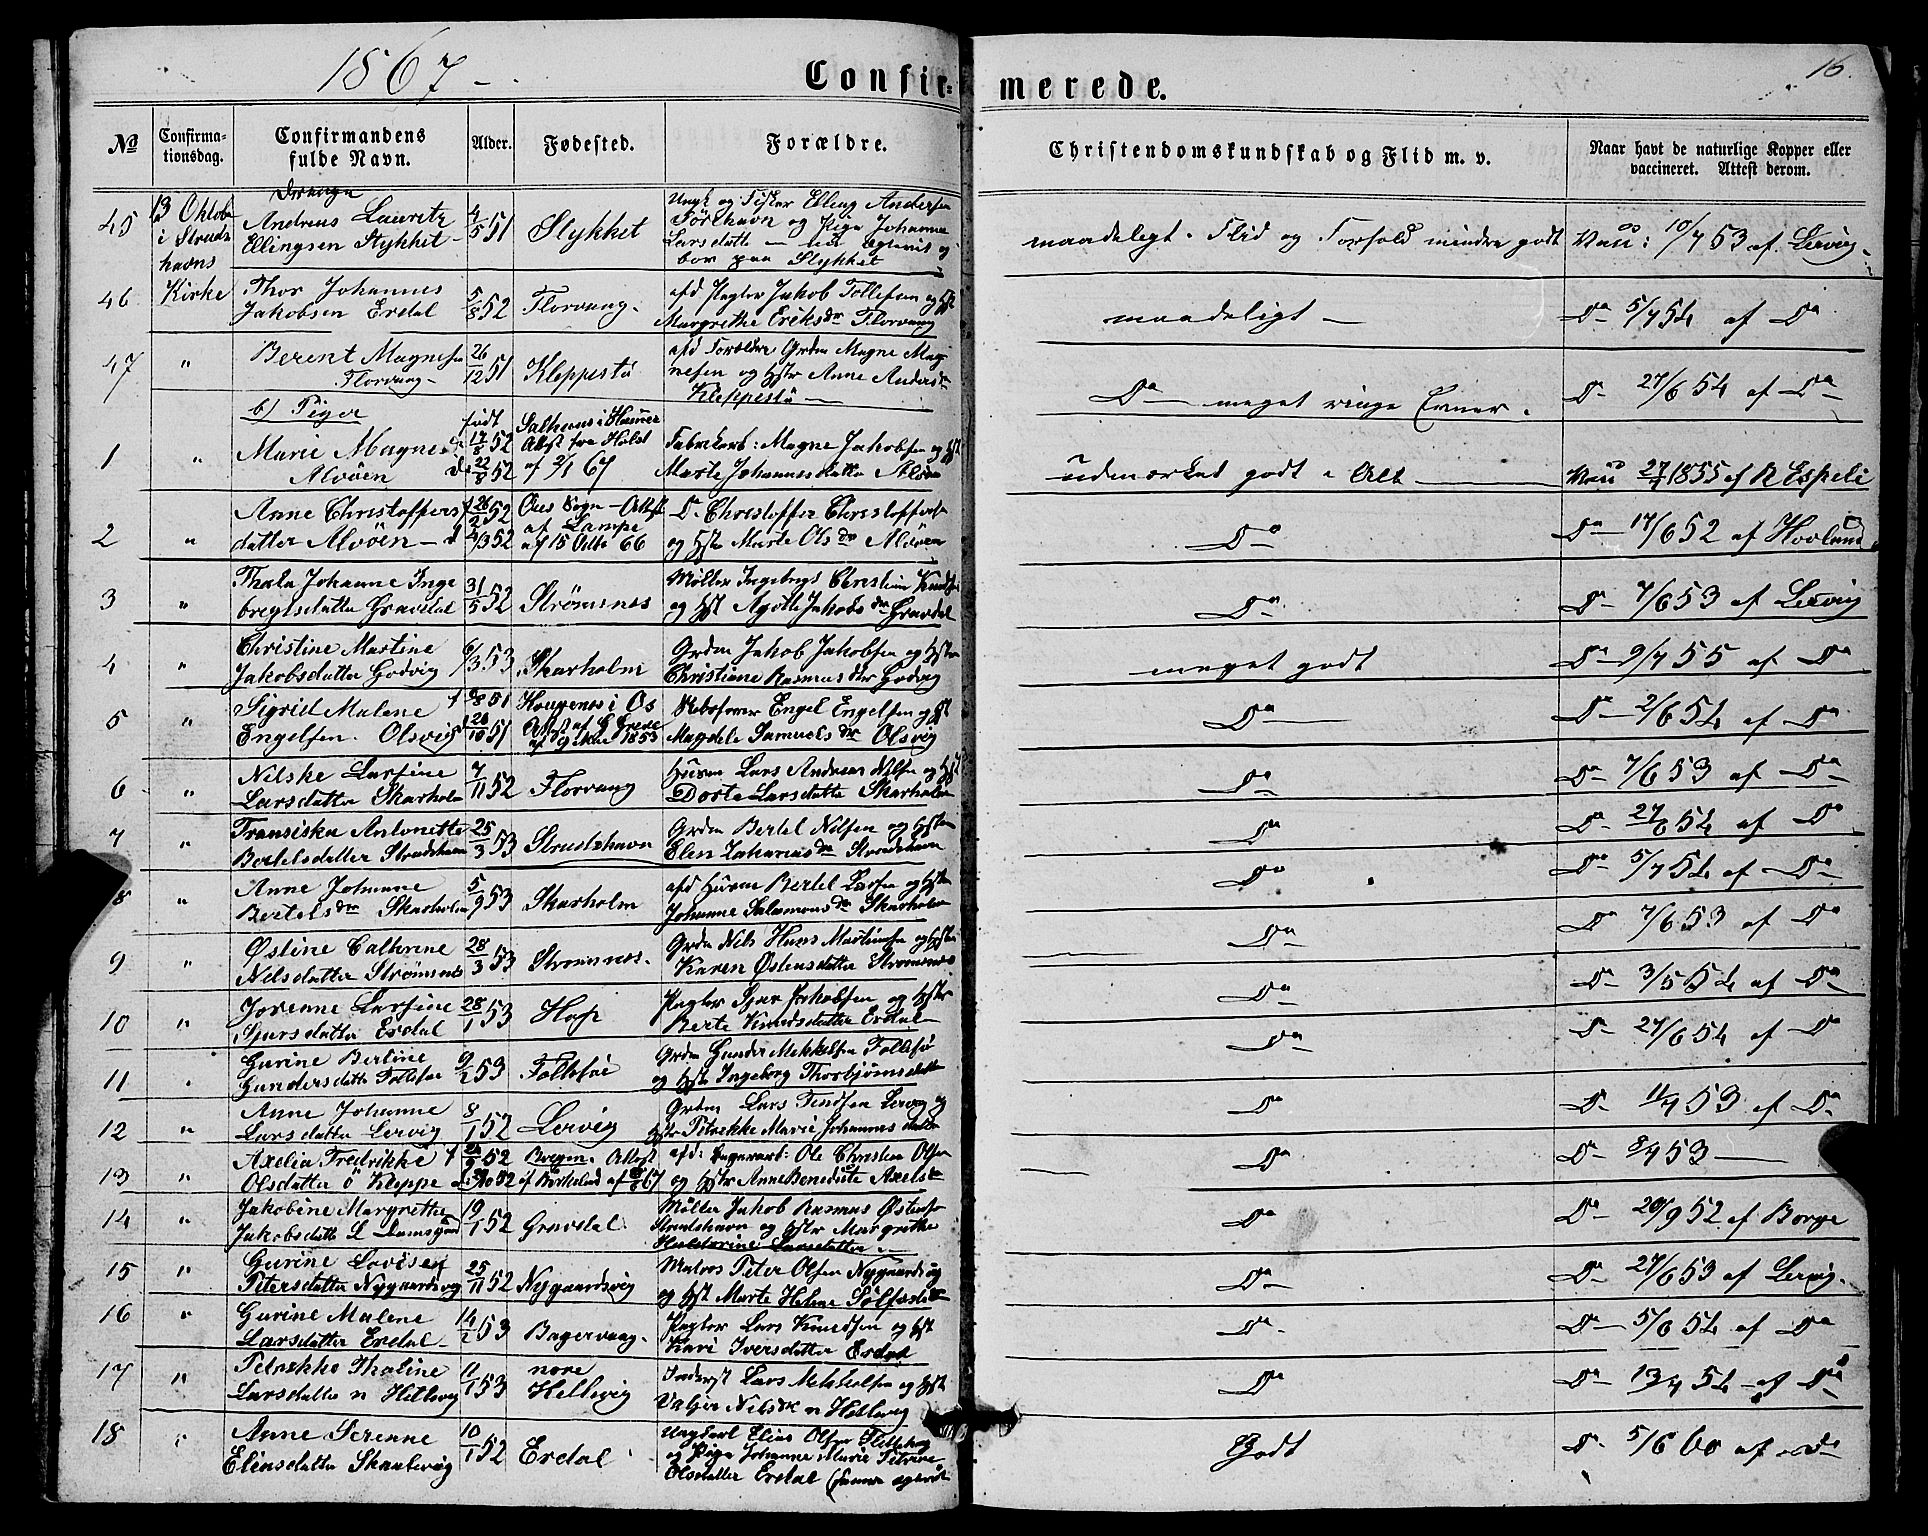 1867 -
Confir=
merede.
16.
No
Confirma-
tionsdag.
Confirmandens
fulde Navn.
Alder.
Fødested.
Forældre.
Christendomskundskab og Flid m. v.
Naar havt de naturlige Kopper eller
vaccineret. Attest derom.
Drenge
45
13 Oktob
i Struds
havns
Kirke
Andreas Lauritz
Ellingsen Stykket -
4/5 51
Stykket
Ungk og Fisker Elling Andersen
og Pige Johanne
Larsdatte
bor paa Stykket
maadeligt. Flid og Forhold mindre godt
Vacc: 10/7 53 af Lervig
46
Thor Johannes
Jakobsen Erdal
5/8 52
Florvaag.
afd Pagter Jakob Tollefsen og Hst
Margrethe Eriksdr Florvaag
maadeligt -
Da 5/7 54 af Da
47
"
Berent Magnesen
Florvaag -
26/12 51
Kleppestø
afd Forældre Grdm Magne Mag-
nesen og Hstr Anne Anders
Kleppestø
Da meget ringe Evner.
Da 27/6 54 af Da
b) Piger
1
"
Marie Magnes
Alvøen
født
17/8 52
d 22/8 52
Salhuus i Hammer
Attest fra Hald
af 2/1 67
Fabrikarb: Magne Jakobsen og Hst
Marte Johannesdatte Alvøen
udmærket godt i Alt
Vacc 27/7 1855 af R Espeli
2
"
Anne Christoffers
datter Alvøen -
f 26/2 52
d 4/3 52
Ous Sogn - Attest
af Lampe
af 15 Octb 66
Da Christoffer Christoffers
og Hst Marte Olsdr Alvøen
Da
Da 17/6 52 af Hovland
3
"
Thala Johanne Inge
bregtsdatte Gravdal
31/5 52
Strømsnes
Møller Ingebregt Christian Knuds
og Hst Agothe Jakobsdr Gravdal
Da
Da 7/6 53 af Lervig
4
"
Christine Martine
Jakobsdatte Godvig
6/3 53
Skarholm
Grdm Jakob Jakobsen og Hstr
Christiane Rasmusdtr Godvig
meget godt
Da 9/7 55 af Da
5
"
Sigrid Malene
Engelsen. Olsvig
Hougenes i Os
Rebslager Engel Engelsen og Hst
Magdele Samuelsdr Olsvig
Da
Da 2/6 54 af Da
6
"
Nilske Larsine
Larsdatter Skarholm
7/11 52
Florvaag
Husm Lars Andreas Nilsen og Hst
Dorte Larsdatte Skarholm
Da
Da 7/6 53 af Da
7
"
Fransiska Antonette
Bertelsdatter Strudshavn
25/3 53
Strudshavn
Grdm Bertel Nilsen og Hstru
Elen Zakariasdr Strudshavn
Da
Da 27/6 54 af Da
8
"
Anne Johanne
Bertelsdr Skarholm
5/9 53
Skarholm
afd Husm Bertel Larsen og Hstr
Johanne Salamonsdr Skarholm
Da
Da 5/7 54 af Da
9
"
Østine Cathrine
Nilsdatter Strømsnes
28/3 53
Strømsnes.
Grdm Nils Hans Martinsen og Hstr
Karen Østensdatter Strømsnes
Da
Da 7/6 53 af Da
10
"
Jorenne Larsine
Sjursdatter Erdal
28/1 53
Hop
Pagter Sjur Jakobsen og Hstr
Berte Knudsdatter Erdal
Da
Da 3/5 54 af Da
11
"
Gurine Bertine
Gundersdatte Follesøe
9/2 53
Follesøe
Grdm Gunder Mikkelsen Follesø
og Hstr Ingeborg Thorbjørnsdatte
Da
Da 27/6 54 af Da
12
"
Anne Johanne
Larsdatte Lervig
8/1 52
Lervig
Grdm Lars Lervig og
Hstr Petrekke Marie Johannesdatte
Da
Da 11/9 53 af Da
13
"
Axelia Fredrikke
Olsdatter ø Kleppe
Bergen. Attest
afd: Ole Christian Olsen
og Hstr Anne Benedicte Axelsd
Da
Da 8/9 53
14
"
Jakobine Margrethe
Jakobsdatte L Damsgaard
19/1 52
Gravdal
Møller Jakob Rasmus Østens
Strudshavn og Hstr Margrethe
Larsdatter
Da
Da 20/9 52 af Borge
15
"
Gurine Lovise
Petersdatter Nygaardsvig
25/11 52
Nygaardsvig
Matros Peter Olsen Nygaardsvig
og Hst Marte Helene
Da
Da 27/6 53 af Lervig.
16
"
Gurine Malene
Larsdatter Erdal -
14/2 53
Bagervaag.
Pagter Lars Knudsen og Hst
Kari Iversdatter Erdal
Da
Da 5/6 54 af Da
17
"
Petrekke Thaline
Larsdatte n Hellevig
11/1 53
nore
Hellevig
Inderst Lars Mikkelsen og Hst
Valger Nilsdr n Hellevig
Da
Da 13/9 54 af Da
18
"
Anne Serenne
Eliasdatte Skaalevig
10/1 52
Erdal
Ungkarl Elias Olsen
og Pige Johanne Marie
Olsdatter Erdal
Godt
Da 5/6 60 af Da